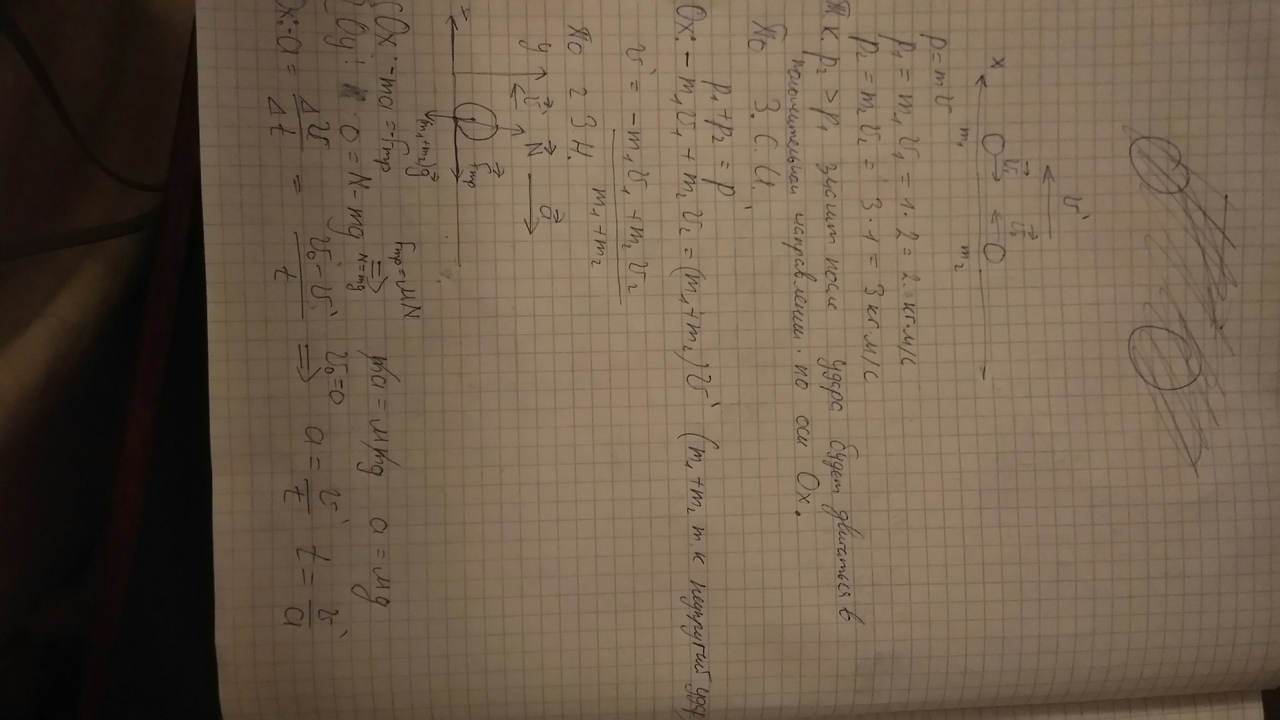 x m₁ m₂ v⃗₁ v⃗₂ v'
p = mv
p₁ = m₁ v₁ = 1·2 = 2 кг·м/с
p₂ = m₂ v₂ = 3·1 = 3 кг·м/с
Тк p₂ > p₁ значит после удара будет двигаться в
положительном направлении по оси Ox.
По З.С.И.
p₁ + p₂ = p'
Ox: - m₁v₁ + m₂v₂ = (m₁ + m₂)v' (m₁ + m₂ т к неупругий удар
v' = -m₁v₁ + m₂v₂ / m₁ + m₂
По 2 З.Н.
y v⃗' N⃗ a⃗
x F⃗тр (m₁+m₂)g⃗
Ox: -ma = -Fтр Fтр = μN
Oy: 0 = N - mg N = mg => ma = μmg a = μg
Ox: -a = Δv / Δt = v₀ - v' / t v₀ = 0 => a = v' / t t = v' / a